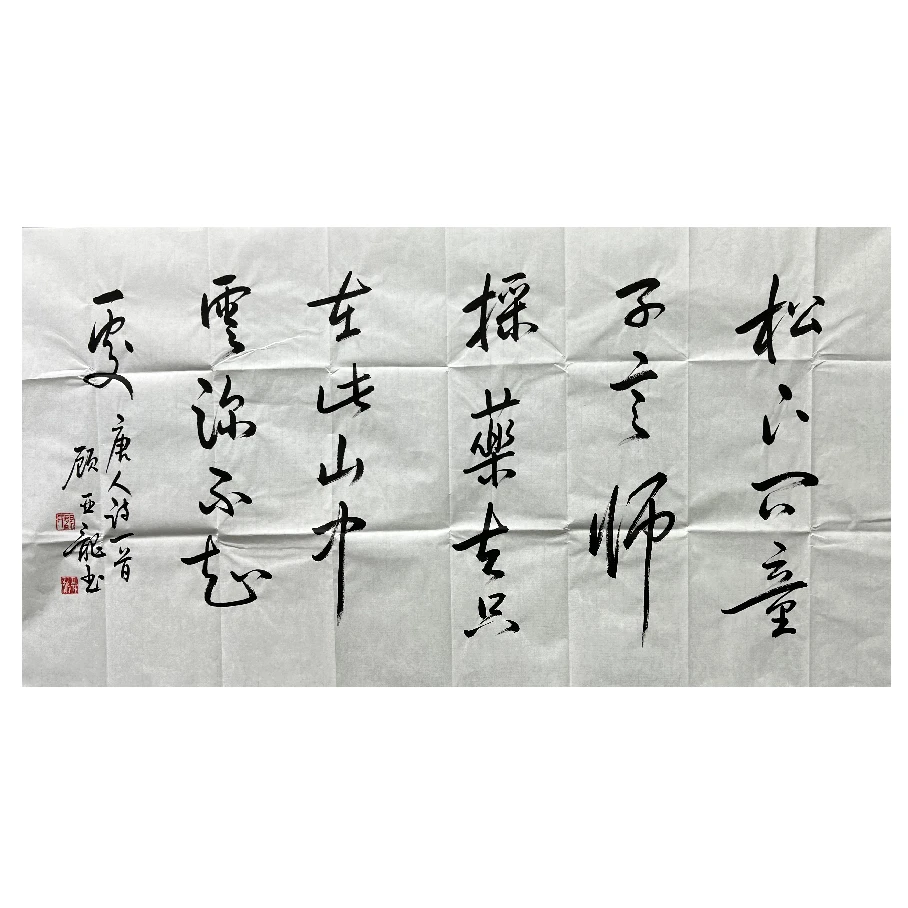 松下问童
子言师
採藥去只
在此山中
雲深不知
處
唐人诗一首
顾亚龍书